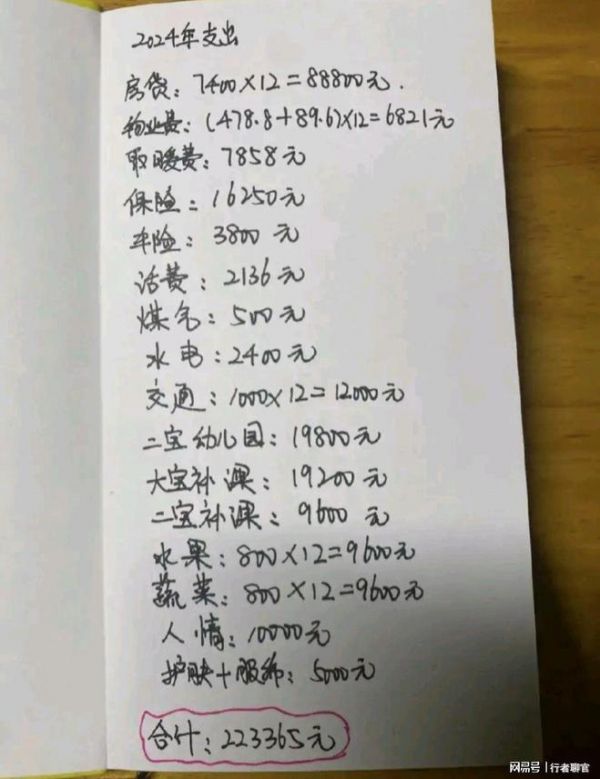 2024年支出
房贷：7400×12=88800元.
物业费：(478.8+89.6)×12=6821元
取暖费：7858元
保险：16250元
车险：3800元
话费：2136元
煤气：500元
水电：2400元
交通：1000×12=12000元
二宝幼儿园：19800元
大宝补课：19200元
二宝补课：9600元
水果：800×12=9600元
蔬菜：800×12=9600元
人情：10000元
护肤+服饰：5000元
合计：223365元
网易号|行者聊官